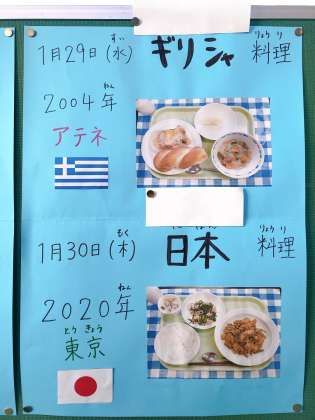 1月29日(水) ギリシャ料理
2004年
アテネ
1月30日(木) 日本料理
2020年
東京